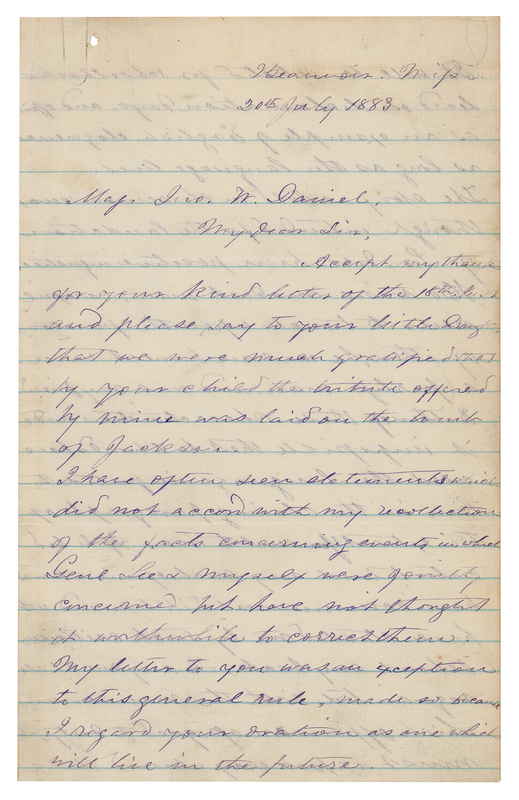 Beauvoir. Missi
20th July 1883
Maj. Jno. W. Daniel,
My dear Sir,
Accept my thanks
for your kind letter of the 18th Inst
and please say to your little Daugr,
that we were much gratified that
by your child the tribute offered
by mine was laid on the tomb
of Jackson.
I have often seen statements which
did not accord with my recollection
of the facts concerning events in which
Genl Lee & myself were jointly
concerned but have not thought
it worthwhile to correct them.
My letter to you was an exception
to this general rule, made so because
I regard your oration as one which
will live in the future.